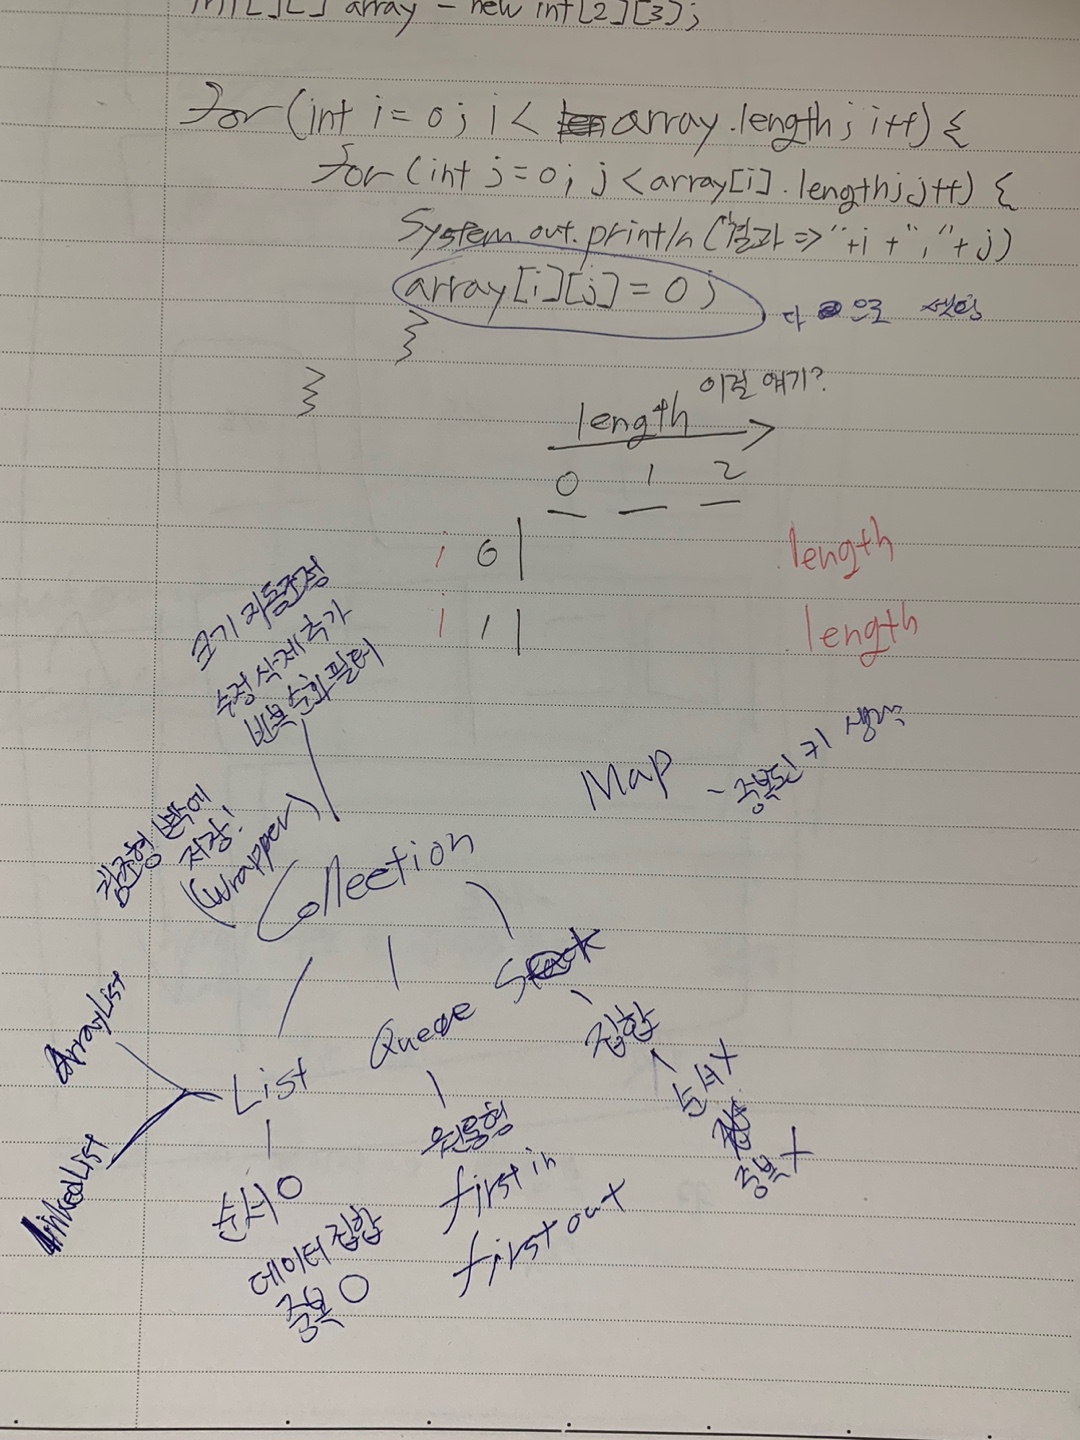 int[][] array = new int[2][3];
for (int i = 0; i < array.length; i++) {
for (int j = 0; j < array[i].length; j++) {
System.out.println("결과 => " + i + "," + j)
array[i][j] = 0;
다 으로 셋팅
}
}
이걸 얘기?
length
0 1 2
1 0 length
1 1 length
크기 자동조정
수정 삭제 추가
반복 순회 필터
Map - 중복된 키
참조형 밖에
저장!
(Wrapper)
Collection
ArrayList
LinkedList
List
Queue
집합
순서 X
중복 X
순서 O
데이터 집합
중복 O
원통형
first in
first out